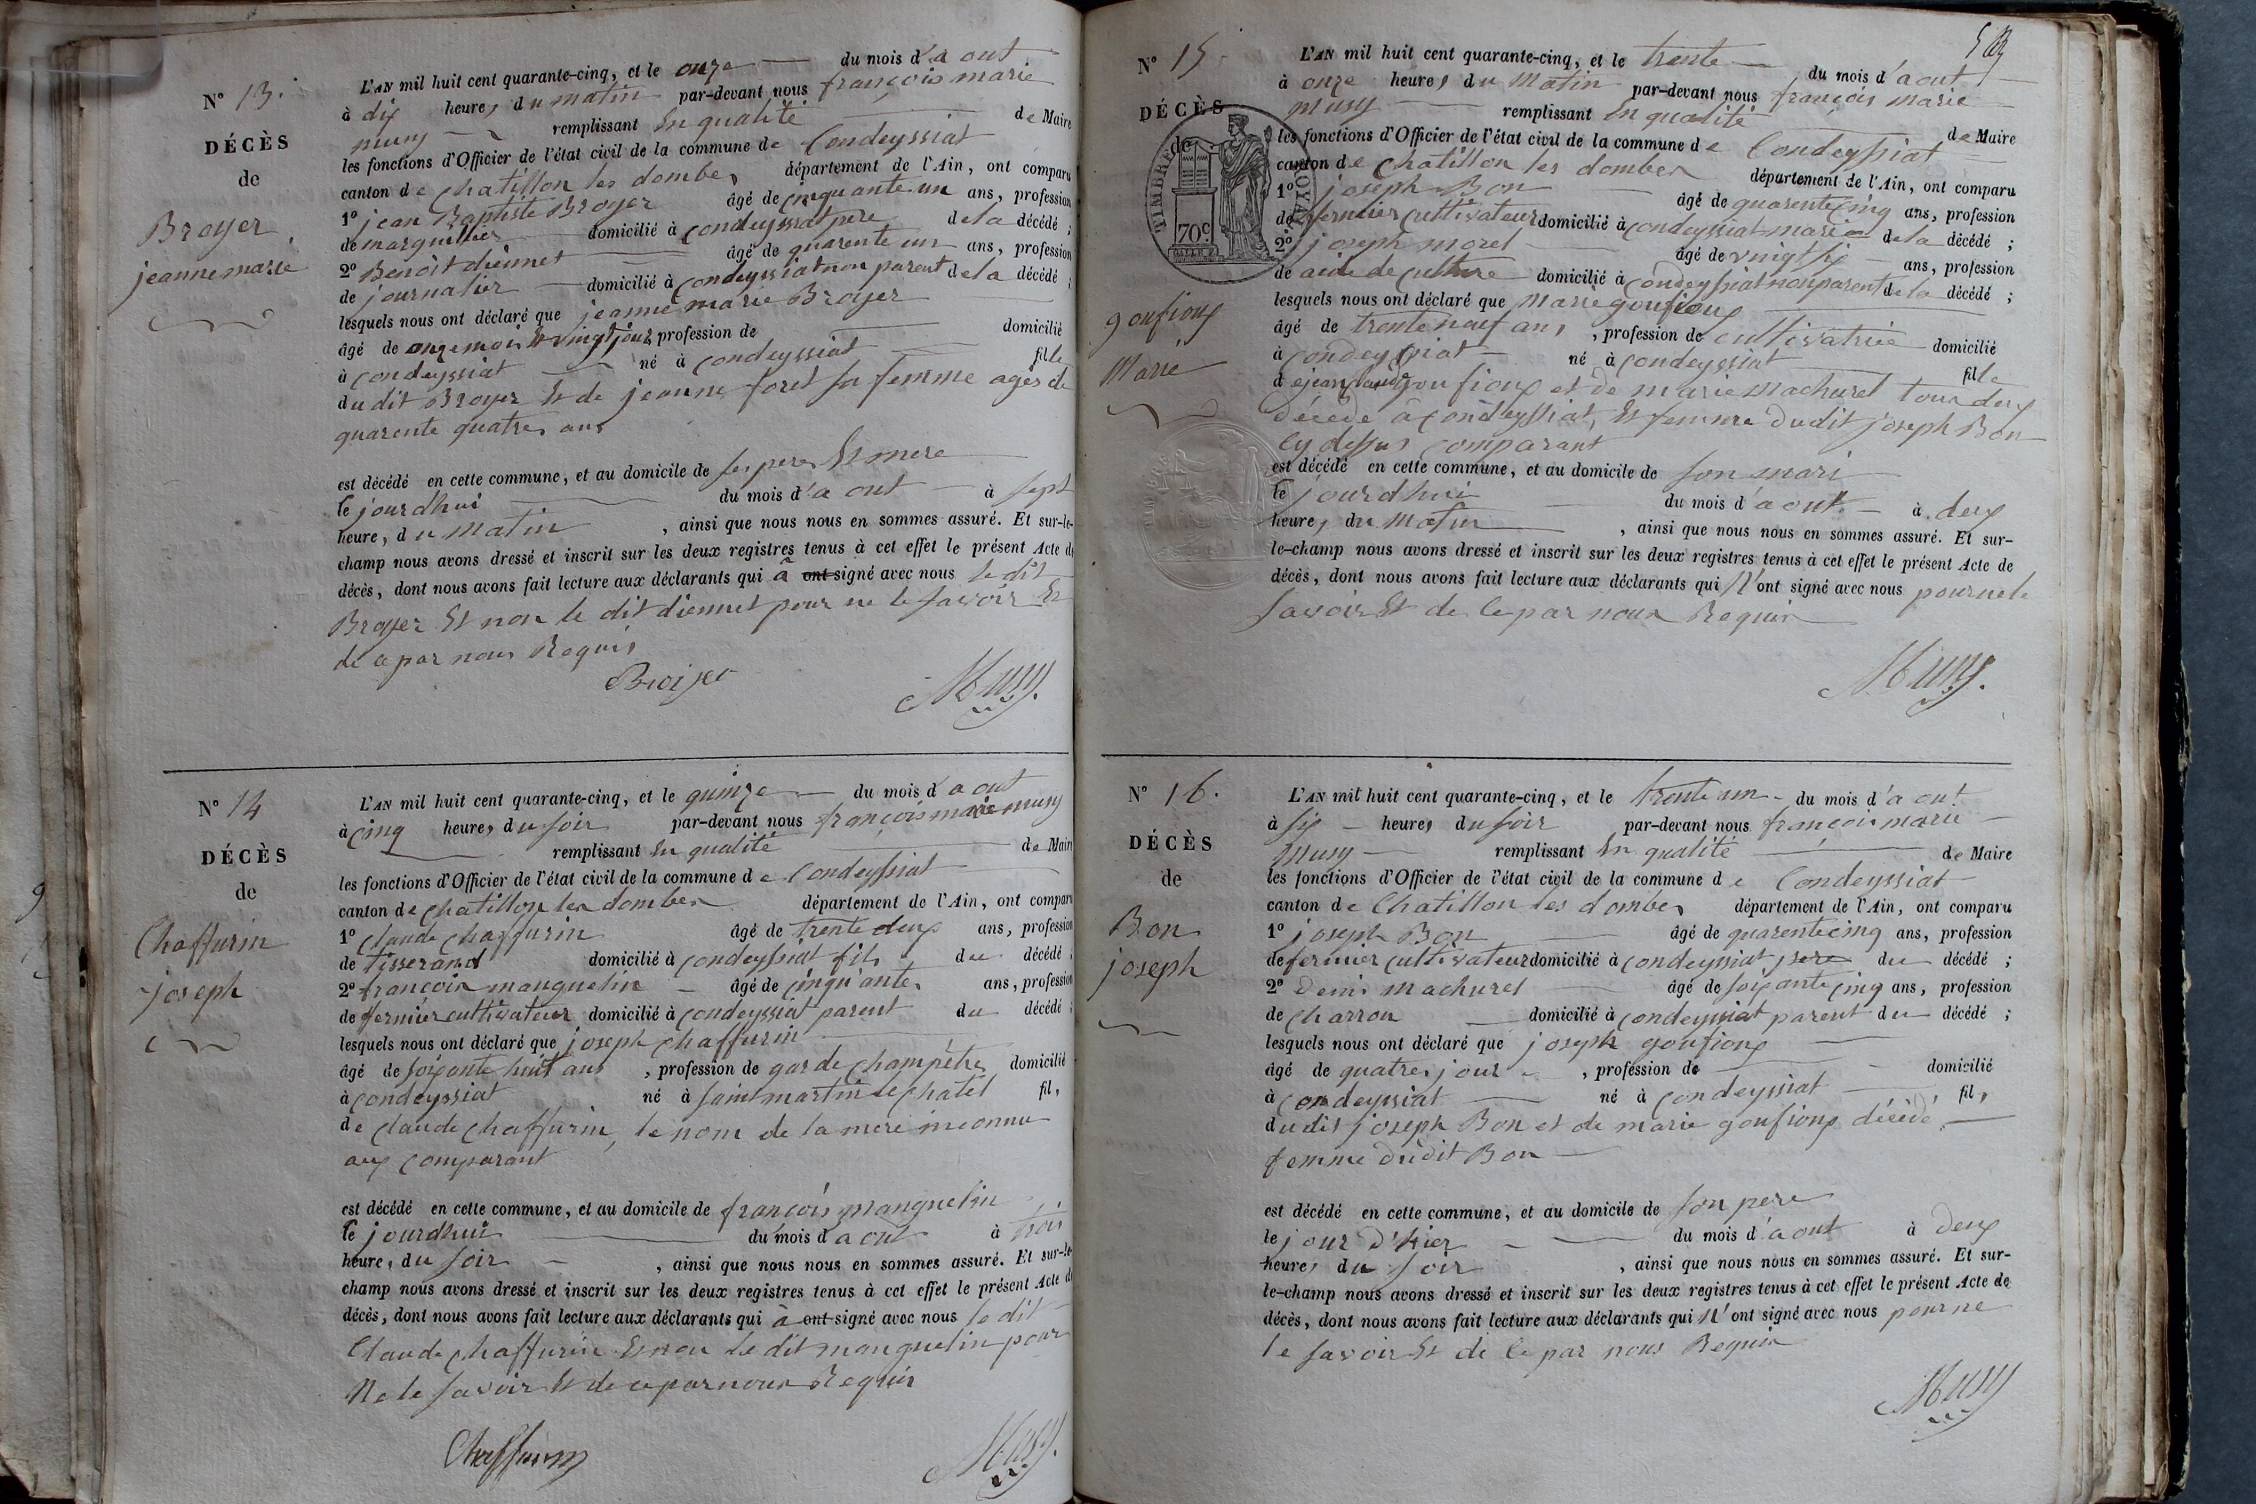 N° 13.
DÉCÈS
de
Broyer
jeanne marie
L'AN mil huit cent quarante-cinq, et le onze du mois d'aout
à dix heures du matin par-devant nous françois marie
muny remplissant En qualité de Maire
les fonctions d'Officier de l'état civil de la commune de Condeyssiat
canton de chatillon les dombes département de l'Ain, ont comparu
1° jean Baptiste Broyer âgé de cinquante un ans, profession
de marguillier domicilié à condeyssiat pere de la décédé ;
2° Benoit diennet âgé de quarente un ans, profession
de journalier domicilié à Condeyssiat non parent de la décédé ;
lesquels nous ont déclaré que jeanne marie Broyer
âgé de onze mois Et vingt jours profession de domicilié
à condeyssiat né à condeyssiat fille
du dit Broyer Et de jeanne foret sa femme agés de
quarente quatres ans
est décédé en cette commune, et au domicile de ses peres Et mere
le jourdhui du mois d'aout à sept
heure, du matin , ainsi que nous nous en sommes assuré. Et sur-le-
champ nous avons dressé et inscrit sur les deux registres tenus à cet effet le présent Acte de
décès, dont nous avons fait lecture aux déclarants qui à ont signé avec nous le dit
Broyer Et non le dit diennet pour ne le savoir Et
de ce par nous Requis
Broiyer Muny.
N° 14
DÉCÈS
de
Chaffurin
joseph
L'AN mil huit cent quarante-cinq, et le quinze du mois d'aout
à cinq heures du soir par-devant nous françois marie muny
remplissant En qualité de Maire
les fonctions d'Officier de l'état civil de la commune de Condeyssiat
canton de chatillon les dombes département de l'Ain, ont comparu
1° Claude Chaffurin âgé de trente deux ans, profession
de Tisserand domicilié à condeyssiat fils du décédé ;
2° françois manguelin âgé de cinquante ans, profession
de fermier cultivateur domicilié à condeyssiat parent du décédé ;
lesquels nous ont déclaré que joseph chaffurin
âgé de soixante huit ans , profession de garde champêtre domicilié
à condeyssiat né à saint martin le chatel fils
de claude chaffurin, le nom de la mere inconnu
aux comparant
est décédé en cette commune, et au domicile de françois manguelin
le jourdhui du mois d'aout à trois
heure, du soir , ainsi que nous nous en sommes assuré. Et sur-le-
champ nous avons dressé et inscrit sur les deux registres tenus à cet effet le présent Acte de
décès, dont nous avons fait lecture aux déclarants qui à ont signé avec nous le dit
Claude chaffurin Et non le dit manguelin pour
Ne le savoir Et de ce par nous Requis
Chaffurin Muny.
N° 15.
DÉCÈS
de
TIMBRE ROYAL
70c
goufioux
Marie
L'AN mil huit cent quarante-cinq, et le trente du mois d'aout
à onze heures du matin par-devant nous françois marie
muny remplissant En qualité de Maire
les fonctions d'Officier de l'état civil de la commune de Condeyssiat
canton de chatillon les dombes département de l'Ain, ont comparu
1° joseph Bon âgé de quarente cinq ans, profession
de fermier cultivateur domicilié à condeyssiat marie de la décédé ;
2° joseph morel âgé de vingt six ans, profession
de aide de culture domicilié à condeyssiat non parent de la décédé ;
lesquels nous ont déclaré que Marie goufioux
âgé de trente neuf ans , profession de cultivatrice domicilié
à condeyssiat né à condeyssiat fille
de jean claude goufioux et de marie machurel tous deux
décedé à condeyssiat, Et femme du dit joseph Bon
Cy dessus comparant
est décédé en cette commune, et au domicile de son mari
le jourdhui du mois d'aout à deux
heure, du matin , ainsi que nous nous en sommes assuré. Et sur-
le-champ nous avons dressé et inscrit sur les deux registres tenus à cet effet le présent Acte de
décès, dont nous avons fait lecture aux déclarants qui N'ont signé avec nous pour ne le
savoir Et de ce par nous Requis
Muny.
N° 16.
DÉCÈS
de
Bon
joseph
L'AN mil huit cent quarante-cinq, et le trente un du mois d'aout
à six heures du soir par-devant nous françois marie
muny remplissant En qualité de Maire
les fonctions d'Officier de l'état civil de la commune de Condeyssiat
canton de Chatillon les dombes département de l'Ain, ont comparu
1° joseph Bon âgé de quarente cinq ans, profession
de fermier cultivateur domicilié à condeyssiat pere du décédé ;
2° denis machurel âgé de soixante cinq ans, profession
de charron domicilié à condeyssiat parent du décédé ;
lesquels nous ont déclaré que joseph goufioux
âgé de quatres jour , profession de domicilié
à condeyssiat né à condeyssiat fils
du dit joseph Bon et de marie goufioux décédé
femme du dit Bon
est décédé en cette commune, et au domicile de son pere
le jour d'hier du mois d'aout à deux
heures du soir , ainsi que nous nous en sommes assuré. Et sur-
le-champ nous avons dressé et inscrit sur les deux registres tenus à cet effet le présent Acte de
décès, dont nous avons fait lecture aux déclarants qui N'ont signé avec nous pour ne
le savoir Et de ce par nous Requis
Muny